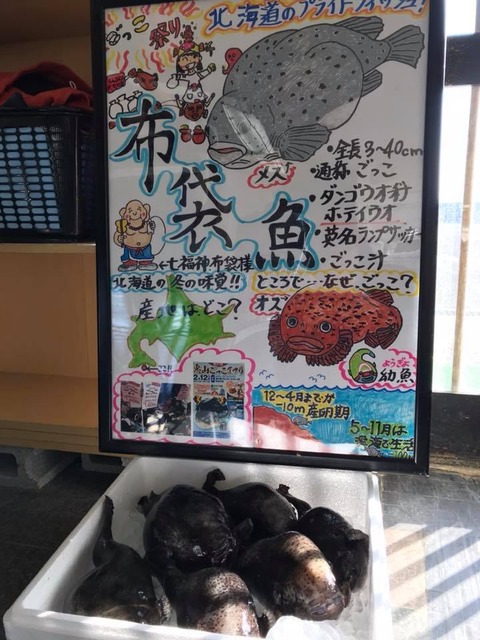 ごっこ祭り
北海道のプライドフィッシュ!
布袋魚
メス↑
・全長3〜40cm
・通称 ごっこ
・ダンゴウオ科
ホテイウオ
・英名ランプサッカー
・ごっこ汁
←七福神布袋様
北海道の冬の味覚!!
ところで…なぜ、ごっこ?
産地はどこ?
オス
ようぎょ
幼魚
12〜4月までが
-10m 産卵期
5〜11月は
深海で生活